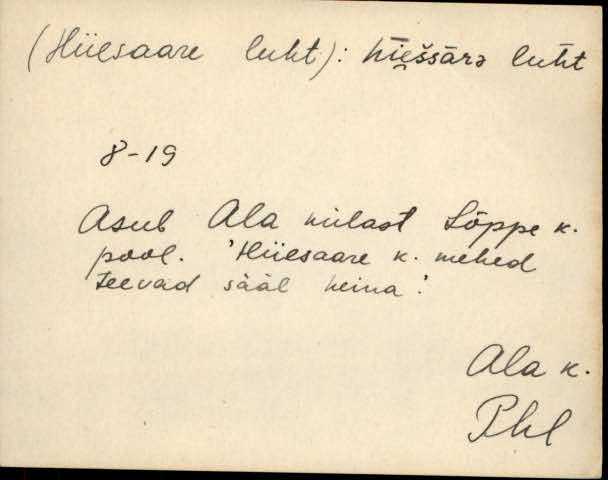 (Hiiesaare luht): hīe̮šsāra luht
8-19
Asub Ala külast Lõppe k.
pool. 'Hiiesaare k. mehed
teevad sääl heina'.
Ala k.
Phl